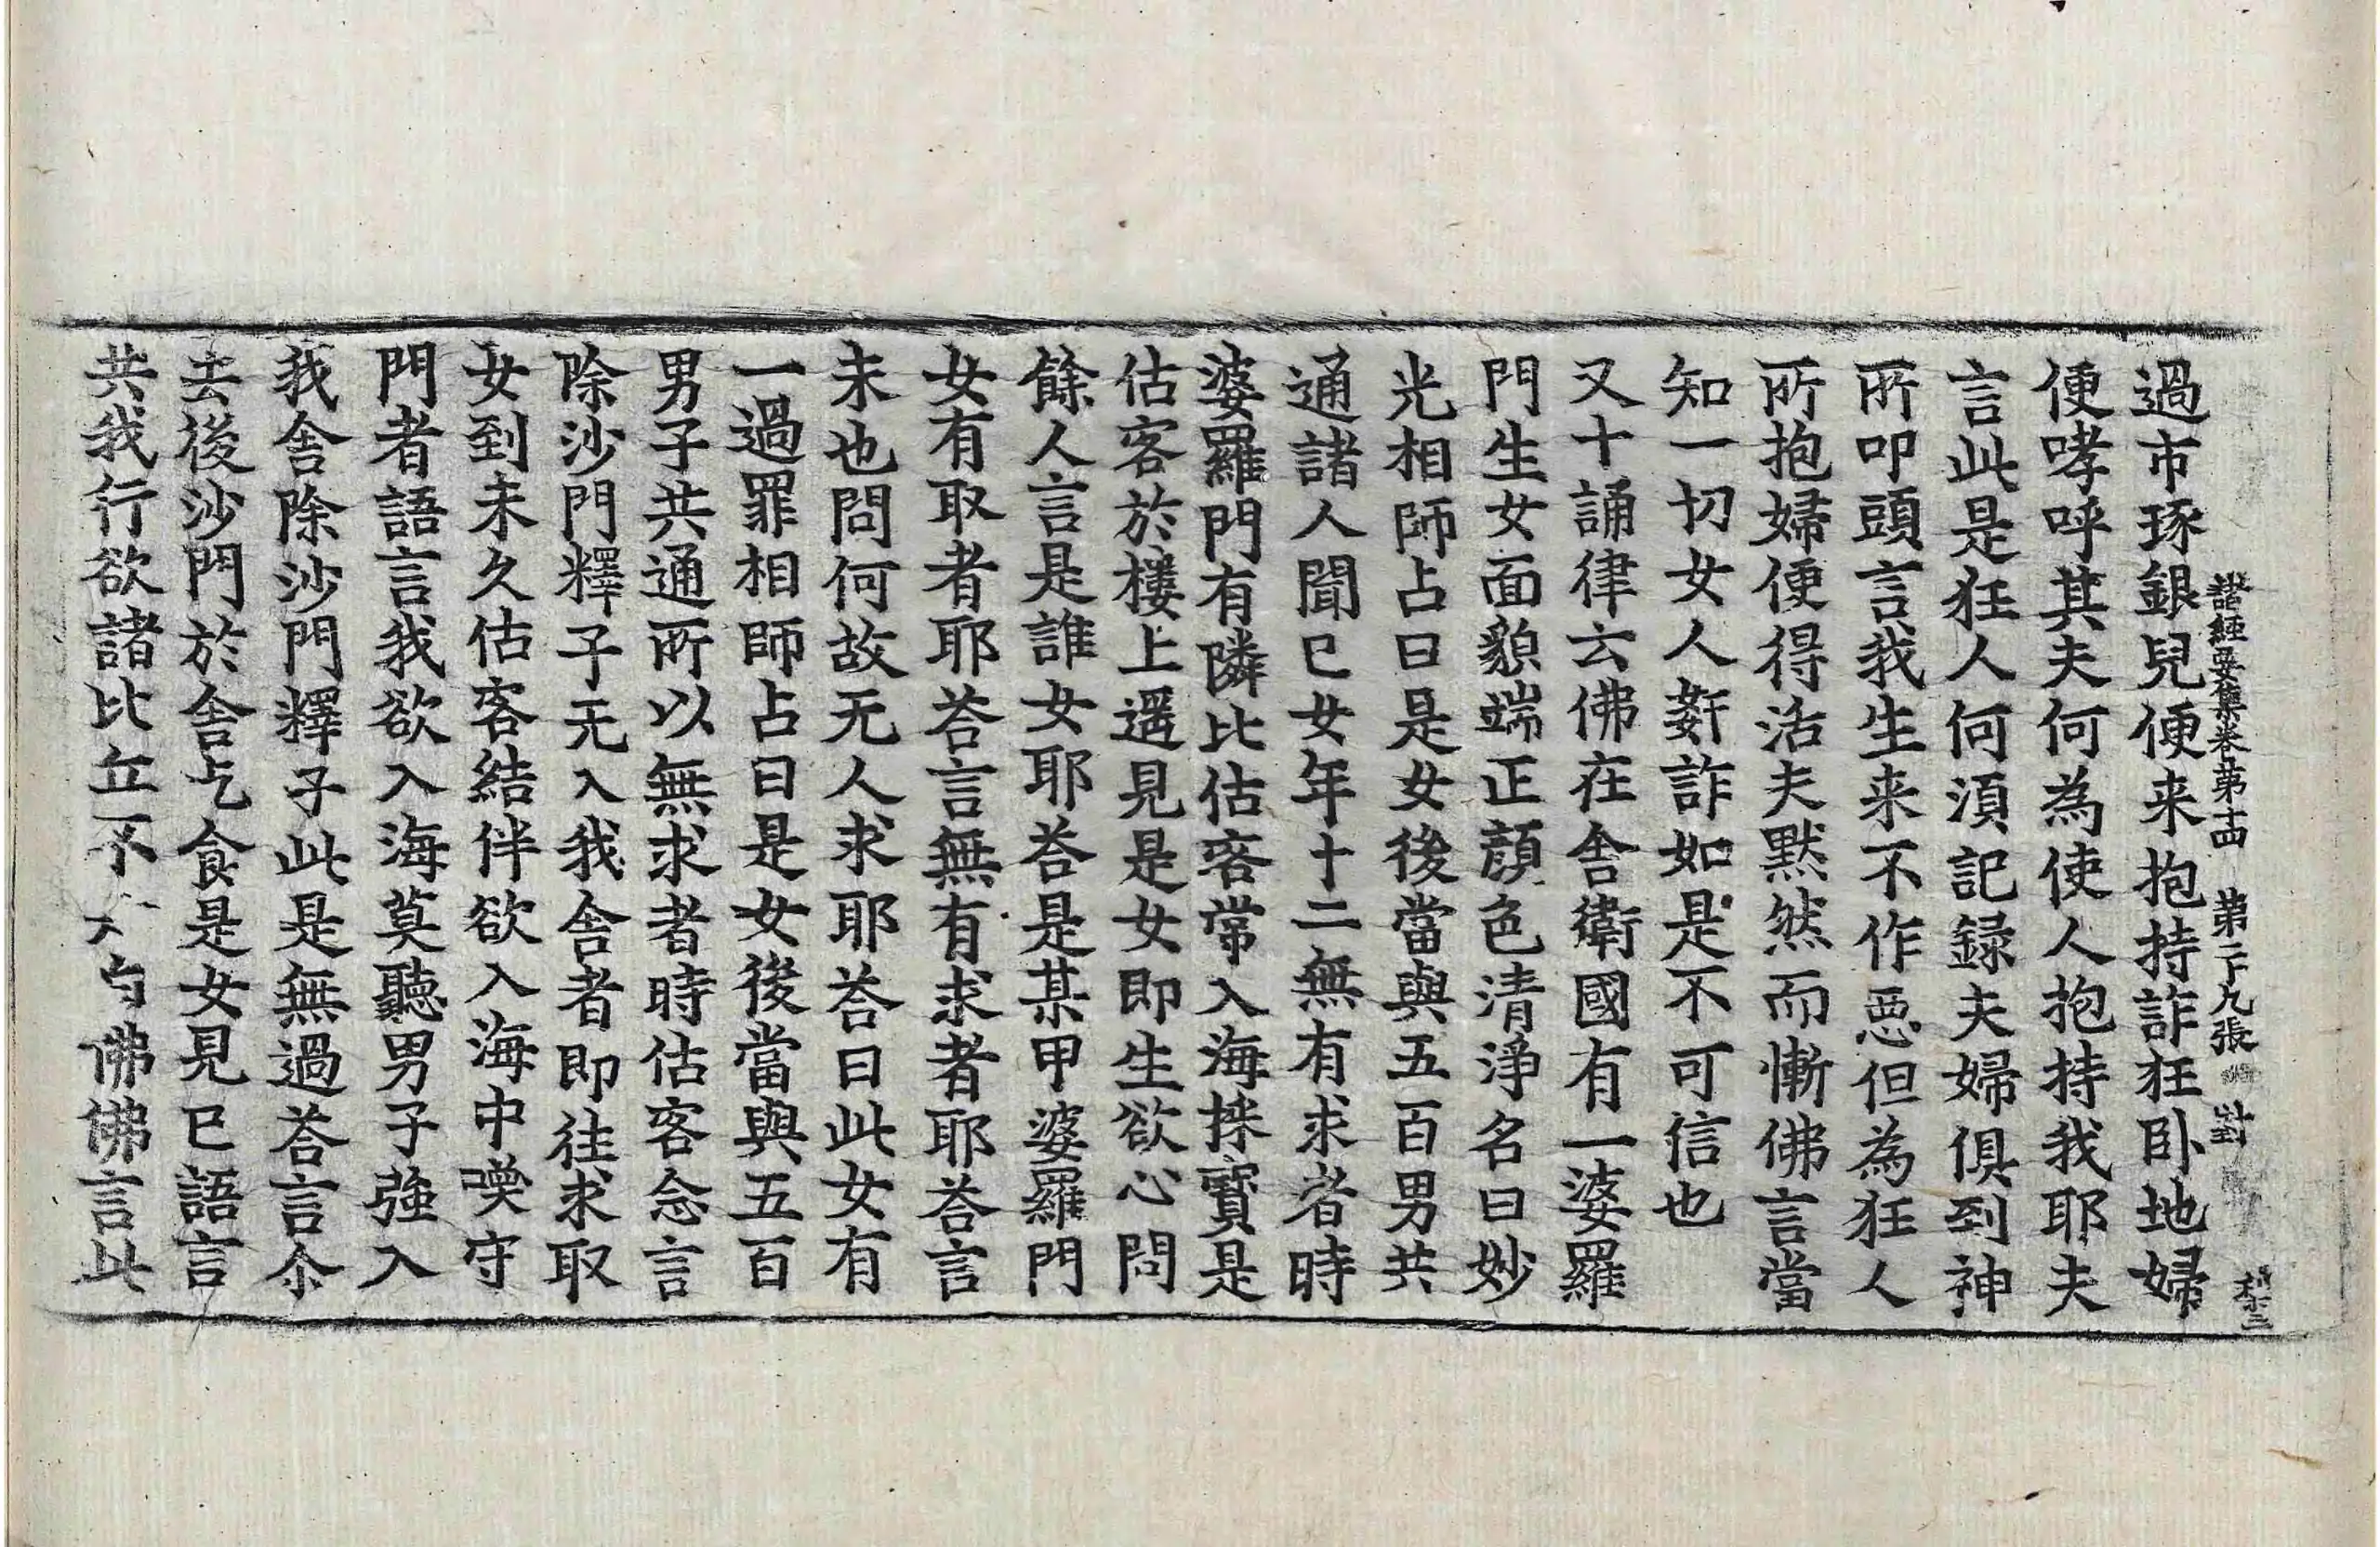 諸經要集卷第十四 第二十九張
過市琢銀兒便来抱持詐狂卧地婦
便哮呼其夫何為使人抱持我耶夫
言此是狂人何湏記録夫婦俱到神
所叩頭言我生来不作惡但為狂人
所抱婦便得活夫默然而慚佛言當
知一切女人姧詐如是不可信也
又十誦律云佛在舍衛國有一婆羅
門生女面貌端正顔色清淨名曰妙
光相師占曰是女後當與五百男共
通諸人聞已女年十二無有求者時
婆羅門有隣比估客常入海採寳是
估客於樓上遥見是女即生欲心問
餘人言是誰女耶荅是某甲婆羅門
女有取者耶荅言無有求者耶荅言
未也問何故无人求耶荅曰此女有
一過罪相師占曰是女後當與五百
男子共通所以無求者時估客念言
除沙門釋子无入我舍者即往求取
女到未久估客結伴欲入海中喚守
門者語言我欲入海莫聽男子強入
我舍除沙門釋子此是無過荅言尒
去後沙門於舍乞食是女見已語言
共我行欲諸比丘不佛佛言此